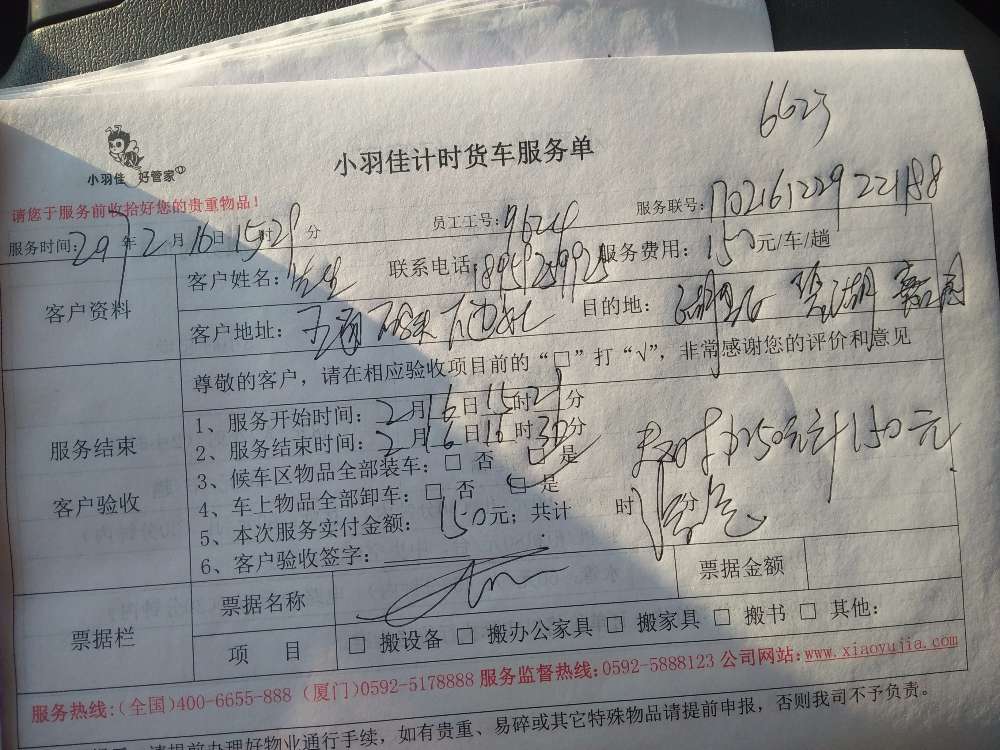 6623
小羽佳 好管家
小羽佳计时货车服务单
请您于服务前收拾好您的贵重物品!
服务时间: 2017年2月16日15时29分 员工工号: 9624 服务联号: 170216122922188
客户资料
客户姓名: 联系电话: 18959259925 服务费用: 150元/车/趟
客户地址: 目的地: 碧湖
服务结束
客户验收
尊敬的客户,请在相应验收项目前的“□”打“√”,非常感谢您的评价和意见
1、服务开始时间: 2月16日15时29分
2、服务结束时间: 2月16日16时30分
3、候车区物品全部装车: □ 否 □ 是
4、车上物品全部卸车: □ 否 □ 是
5、本次服务实付金额: 150元; 共计 时 分
6、客户验收签字:
150元
票据栏
票据名称 票据金额
项 目 □ 搬设备 □ 搬办公家具 □ 搬家具 □ 搬书 □ 其他:
服务热线:(全国)400-6655-888 (厦门)0592-5178888 服务监督热线:0592-5888123 公司网站:www.xiaoyujia.com
请提前办理好物业通行手续, 如有贵重、易碎或其它特殊物品请提前申报, 否则我司不予负责。